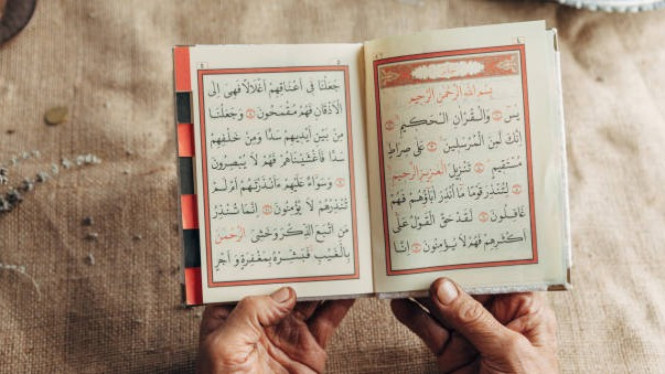 بِسْمِ اللهِ الرَّحْمٰنِ الرَّحِيمِ
يٰسۤ وَالْقُرْاٰنِ الْحَكِيمِ
اِنَّكَ لَمِنَ الْمُرْسَلِينَ عَلٰى صِرَاطٍ
مُسْتَقِيمٍ تَنْزِيلَ الْعَزِيزِ الرَّحِيمِ
لِتُنْذِرَ قَوْمًا مَا اُنْذِرَ اٰبَاؤُهُمْ فَهُمْ
غَافِلُونَ لَقَدْ حَقَّ الْقَوْلُ عَلٰى
اَكْثَرِهِمْ فَهُمْ لَا يُؤْمِنُونَ اِنَّا
جَعَلْنَا فِى اَعْنَاقِهِمْ اَغْلَالًا فَهِىَ اِلَى
الْاَذْقَانِ فَهُمْ مُقْمَحُونَ وَجَعَلْنَا
مِنْ بَيْنِ اَيْدِيهِمْ سَدًّا وَمِنْ خَلْفِهِمْ
سَدًّا فَاَغْشَيْنَاهُمْ فَهُمْ لَا يُبْصِرُونَ
وَسَوَاءٌ عَلَيْهِمْ ءَاَنْذَرْتَهُمْ اَمْ لَمْ
تُنْذِرْهُمْ لَا يُؤْمِنُونَ اِنَّمَا تُنْذِرُ
مَنِ اتَّبَعَ الذِّكْرَ وَخَشِىَ الرَّحْمٰنَ
بِالْغَيْبِ فَبَشِّرْهُ بِمَغْفِرَةٍ وَ اَجْرٍ